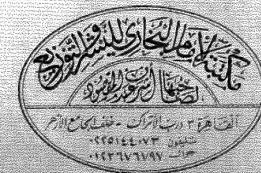 مكتبة الإمام البخاري للنشر والتوزيع
لصاحبها أشرف عبد المقصود
القاهرة ٣ درب الأتراك - خلف الجامع الأزهر
تليفون ٠٢٢٥١٤٤٠٧٣
جوال ٠١٢٣٦٧٦١٧٩٧